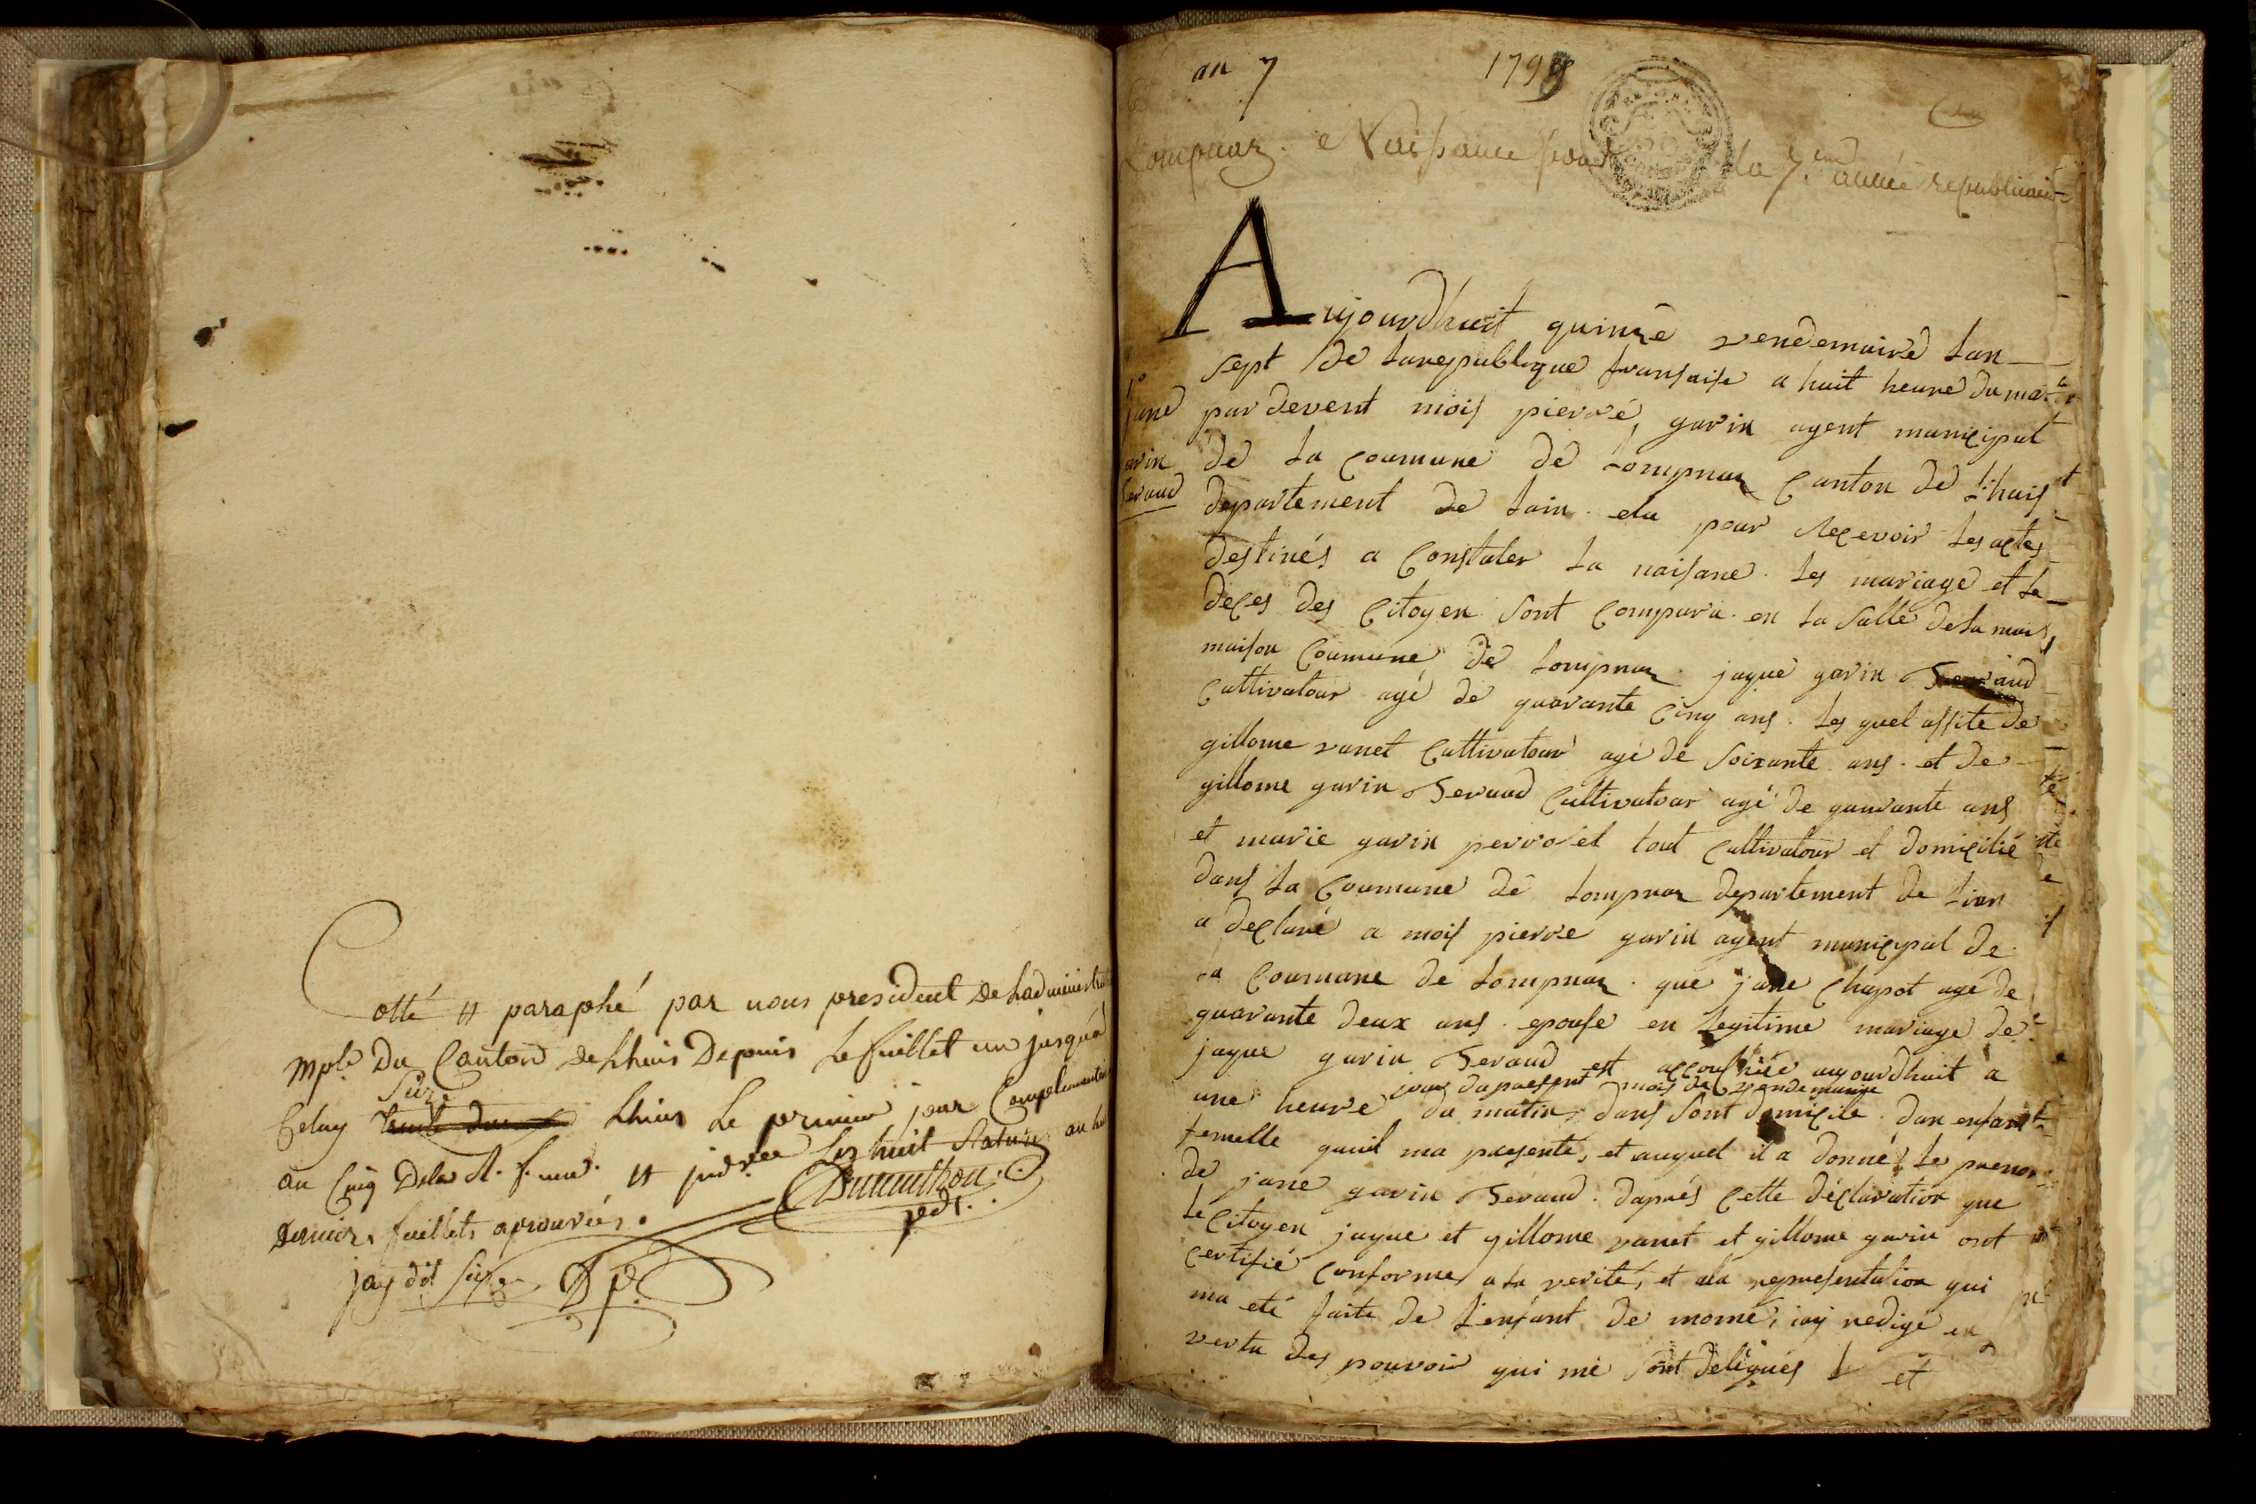 Cotté et paraphé par nous president de Ladministra
mple du Canton de Lhuis Depuis Le feuillet un jusqu'a
Seize
Celuy Lhuis Le premier jour Complementaire
au Cinq Dela R. f. une. et
Dernier feuillets aprouvés.
Dumuthon
pdt.
jay dit Seize D p.
an 7 1798
Lompnaz. Naissance pour la 7.eme année republicaine
Aujourdhuit quinze vendemaire Lan
sept de Larepublique fransaise a huit heure du mat
par devent mois pierre gavin agent municipal
de La Coumune de Lompnaz Canton de Lhuis
departement de Lain elu pour Recevoir Les actes
destinés a Constater La naisane. Les mariage et Le
deces des Citoyen sont Compara en La salle dela mais
maison Coumune de Lompnaz jaque gavin Feraud
Cultivatour agé de quarante Cinq ans. Les quel assite de
gillome vanet Cultivatour agé de soixante ans. et de
gillome gavin Feraud Cultivatour agé de quarante ans
et marie gavin perroset tout Cultivatour et domicilié
dans La Coumune de Lompnaz departement de Lien
a declaré a mois pierre gavin agent municipal de
La Coumune de Lompnaz. que jane Chapot agé de
quarante deux ans. epouse en Legitime mariage de
jaque gavin Feraud est accouchée aujourdhuit a
jour du present mois de vendemaire
une heure du matin, dans sont domicile. dun enfant
femelle quil ma presenté, et auquel il a donné Le prenom
de jane gavin Feraud. daprés Cette déclaration que
Le Citoyen jaque et gillome vanet et gillome gavin ont
certifié conforme a La verité, et ala representation qui
ma eté faite de Lenfant de nomé, iay redigé en
vertu des pouvoir qui me sont delégués et
1°
jane
gavin
Feraud